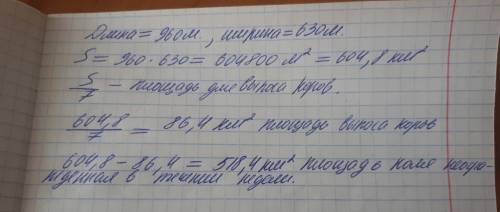 Длина = 960м., ширина = 630м.
S = 960 · 630 = 604800 м² = 604,8 км²
S/7 - площадь для выпаса коров.
604,8/7 = 86,4 км² площадь выпаса коров
604,8 - 86,4 = 518,4 км² площадь поля
в течении недели.